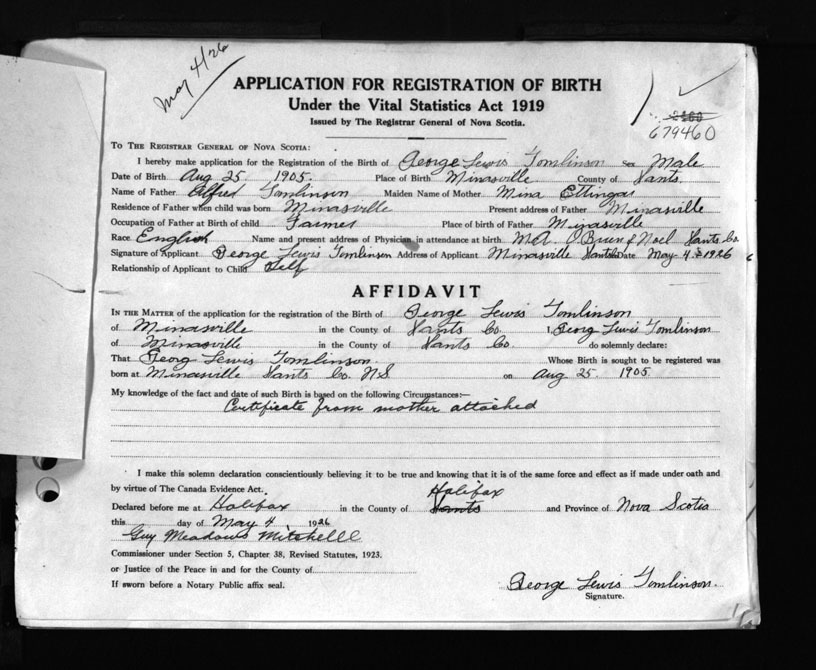 May 4/26
APPLICATION FOR REGISTRATION OF BIRTH
Under the Vital Statistics Act 1919
Issued by The Registrar General of Nova Scotia.
679460
TO THE REGISTRAR GENERAL OF NOVA SCOTIA:
I hereby make application for the Registration of the Birth of George Lewis Tomlinson Sex Male
Date of Birth Aug 25 1905. Place of Birth Minasville County of Hants.
Name of Father Alfred Tomlinson Maiden Name of Mother Mina Ettinger
Residence of Father when child was born Minasville Present address of Father Minasville
Occupation of Father at Birth of child Farmer Place of birth of Father Minasville
Race English Name and present address of Physician in attendance at birth M.A. O'Brien Noel Hants Co.
Signature of Applicant George Lewis Tomlinson Address of Applicant Minasville Hants Date May 4 1926
Relationship of Applicant to Child Self
AFFIDAVIT
IN THE MATTER of the application for the registration of the Birth of George Lewis Tomlinson
of Minasville in the County of Hants Co I, Georg Lewis Tomlinson
of Minasville in the County of Hants Co. do solemnly declare:
That Georg Lewis Tomlinson. Whose Birth is sought to be registered was
born at Minasville Hants Co. N.S on Aug 25 1905
My knowledge of the fact and date of such Birth is based on the following Circumstances:—
Certificate from mother attached
I make this solemn declaration conscientiously believing it to be true and knowing that it is of the same force and effect as if made under oath and
by virtue of The Canada Evidence Act.
Halifax
Declared before me at Halifax in the County of Hants and Province of Nova Scotia
this day of May 4 1926
Guy Meadows Mitchelll
Commissioner under Section 5, Chapter 38, Revised Statutes, 1923.
or Justice of the Peace in and for the County of
If sworn before a Notary Public affix seal.
George Lewis Tomlinson.
Signature.